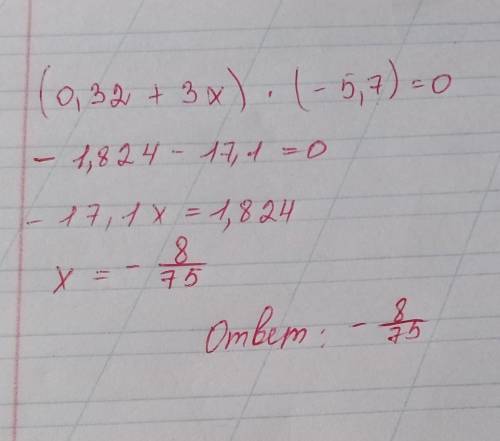 (0,32 + 3x) · (- 5,7) = 0
- 1,824 - 17,1 = 0
- 17,1x = 1,824
x = - 8/75
Ответ: - 8/75